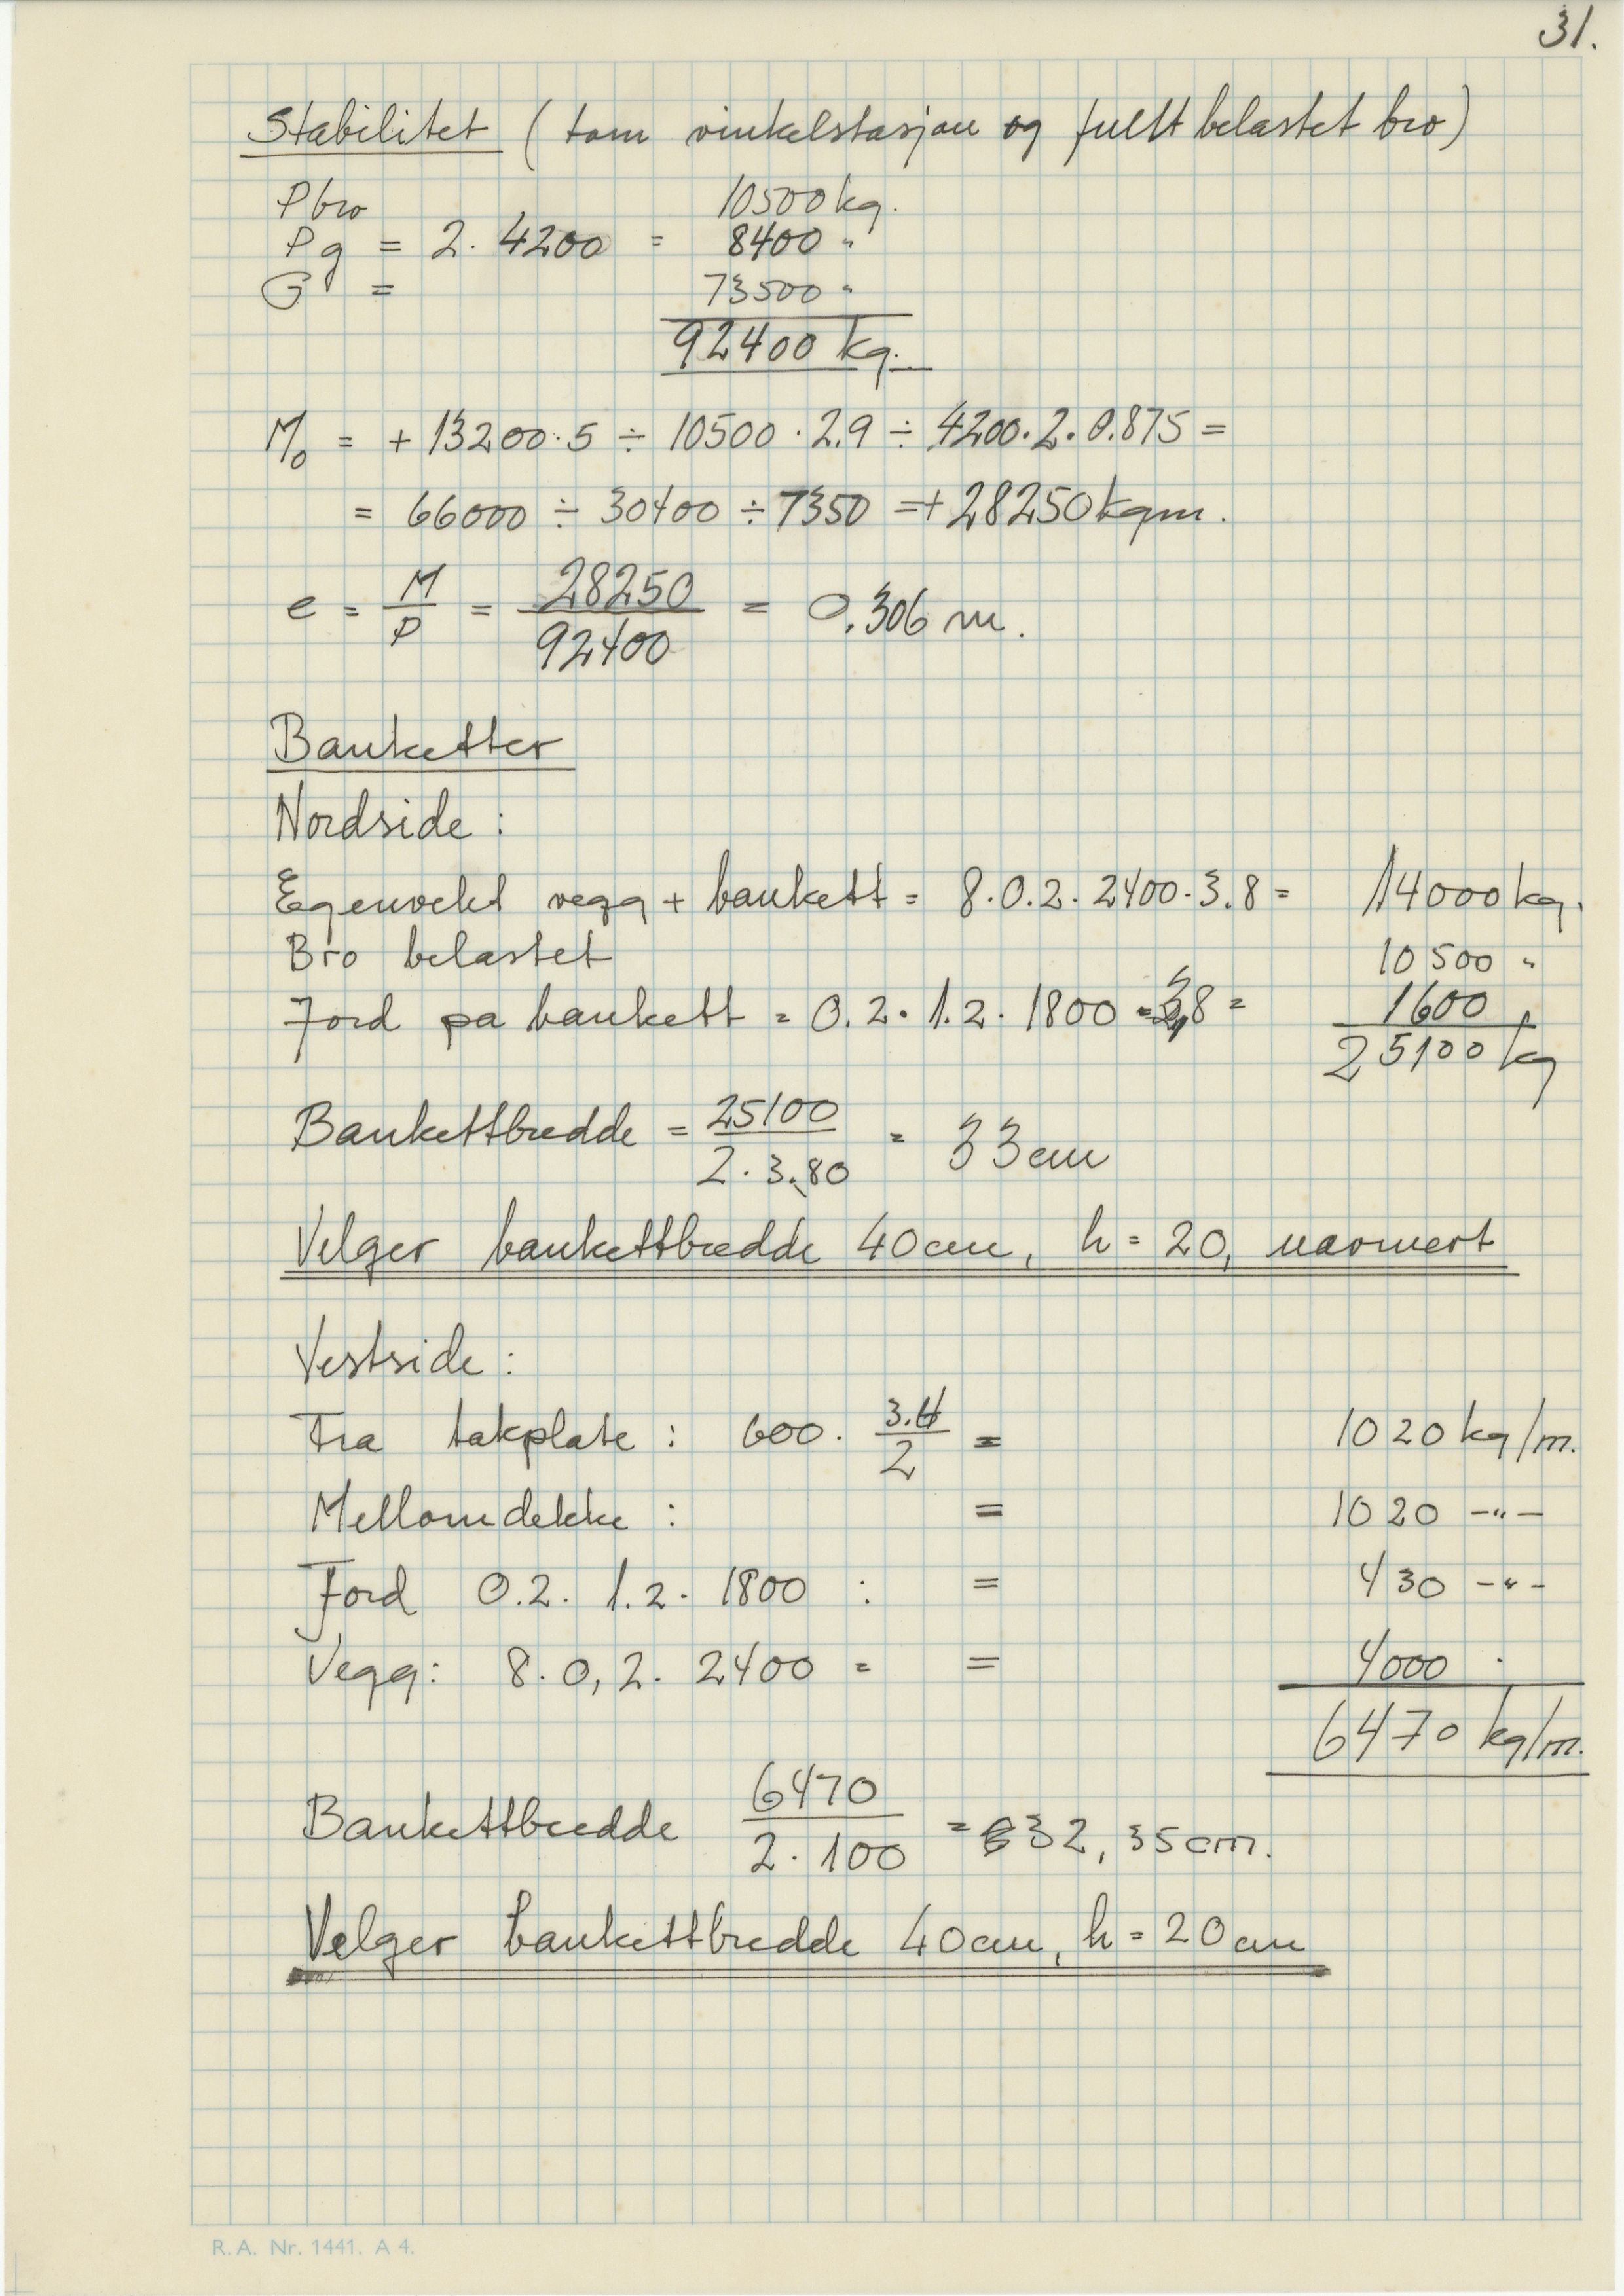 31.
Stabilitet (tom vinkelstasjon og fullt belastet bro)
Pbro 10500 kg.
Pg = 2. 4200 = 8400 "
G = 73500 "
92400 kg.
M₀ = + 13200·5 ÷ 10500 · 2.9 ÷ 4200·2·0.875 =
= 66000 ÷ 30400 ÷ 7350 = + 28250 kgm.
e = M/P = 28250/92400 = 0.306 m.
Banketter
Nordside :
Egenvekt vegg + bankett = 8·0.2·2400·3.8 = 14000 kg.
Bro belastet 10500 "
Jord på bankett = 0.2·1.2·1800·3,8 = 1600
25100 kg
Bankettbredde = 25100/2·3.80 = 33 cm
Velger bankettbredde 40cm, h = 20, uarmert
Vestside :
Fra takplate : 600 · 3.4/2 = 1020 kg/m.
Mellomdekke : = 1020 -"-
Jord 0.2· 1.2· 1800 : = 430 -"-
Vegg: 8·0,2· 2400 = = 4000 "
6470 kg/m.
Bankettbredde 6470/2·100 = 32,35 cm.
Velger bankettbredde 40cm, h = 20 cm
R. A. Nr. 1441. A 4.